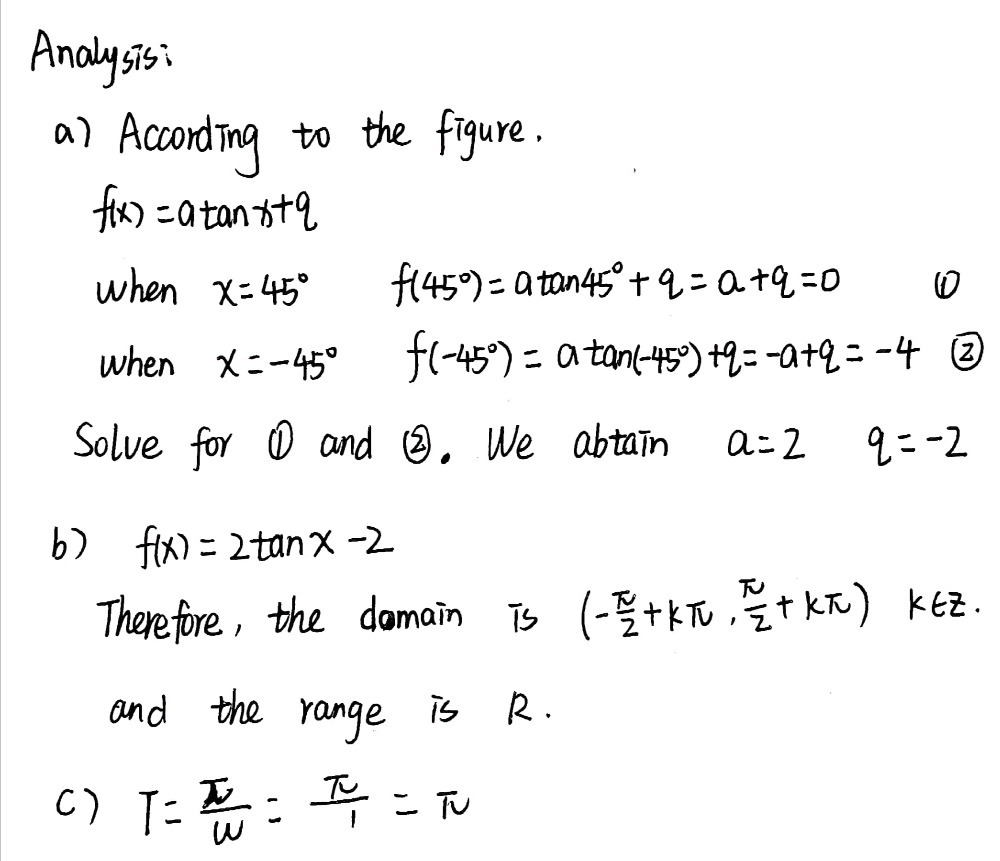 Analysis:
a) According to the figure.
f(x) = a tan x + q
when x = 45° f(45°) = a tan 45° + q = a + q = 0 ①
when x = -45° f(-45°) = a tan(-45°) + q = -a + q = -4 ②
Solve for ① and ②. We abtain a = 2 q = -2
b) f(x) = 2 tan x - 2
Therefore, the domain is (-π/2 + kπ, π/2 + kπ) k∈Z.
and the range is R.
c) T = π/w = π/1 = π